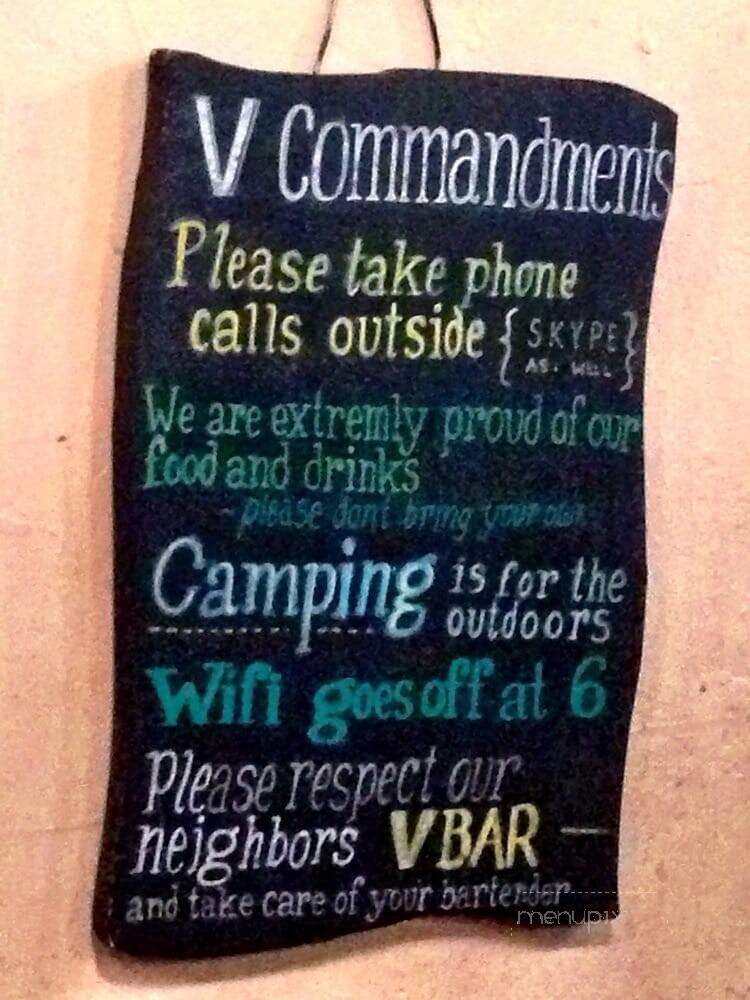 V Commandments
Please take phone
calls outside {SKYPE
AS. WELL}
We are extremly proud of our
food and drinks
- please dont bring your own
Camping is for the
outdoors
Wifi goes off at 6
Please respect our
neighbors VBAR —
and take care of your bartender
menupix